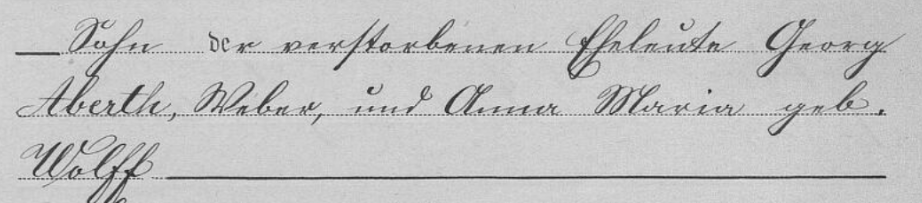 Sohn der verstorbenen Eheleute Georg
Aberth, Weber, und Anna Maria geb.
Wolff